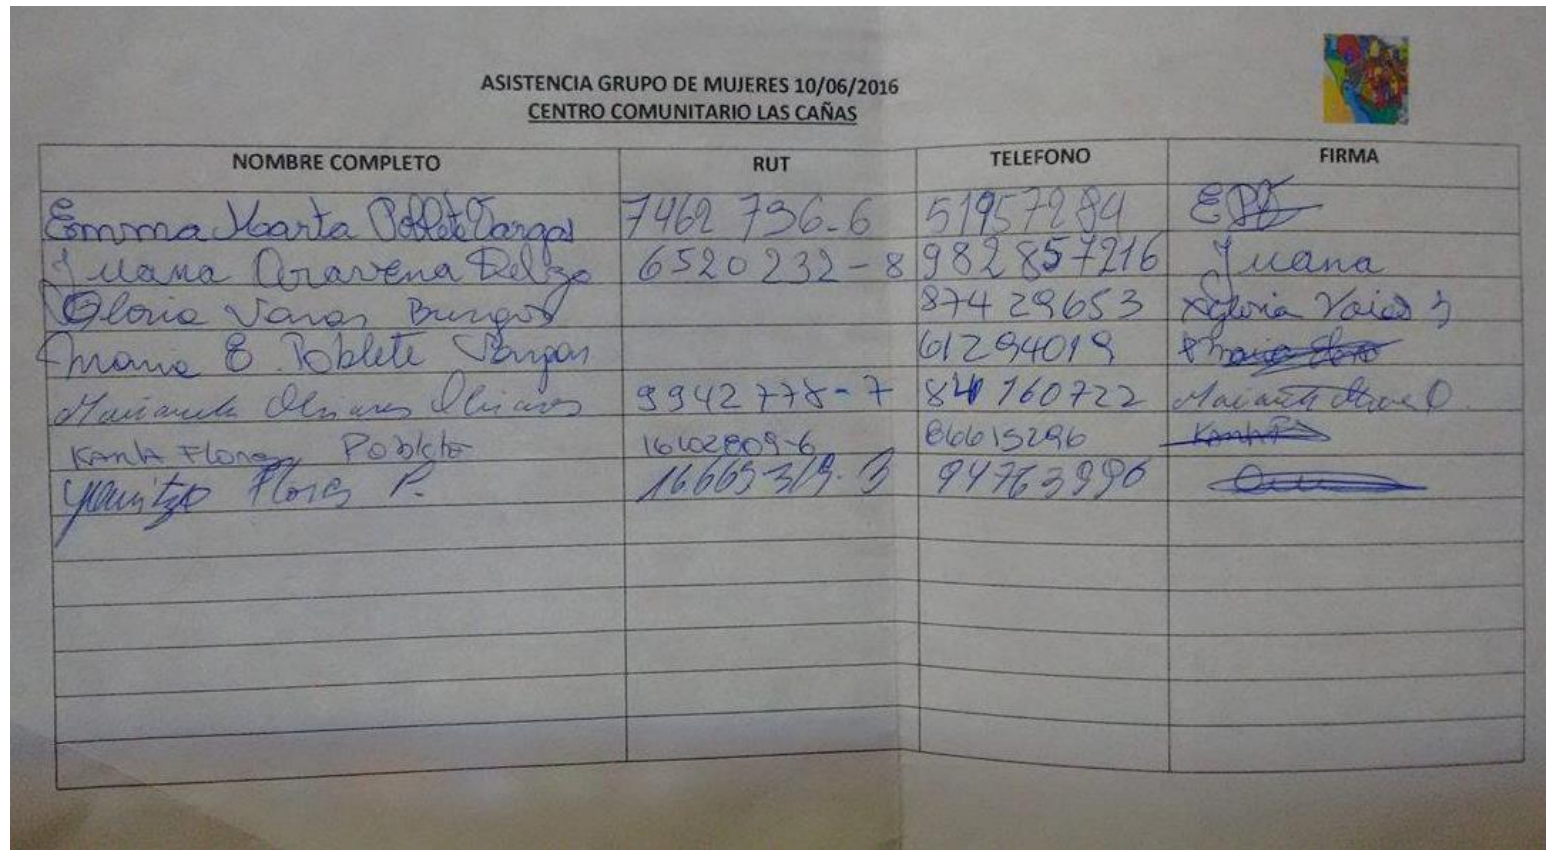 ASISTENCIA GRUPO DE MUJERES 10/06/2016
CENTRO COMUNITARIO LAS CAÑAS
NOMBRE COMPLETO RUT TELEFONO FIRMA
Emma Marta Poblete Vargas 7462 736-6 51957284
Juana Aravena 6520232-8 982857216 Juana
Gloria Varas Burgos 87429653 Gloria
Maria E. Poblete Vargas 61294019
Olivares Olivares 9942778-7 760722
Flores Poblete 16602809-6 86615296
Yanitza Flores P. 16665319-3 94763990